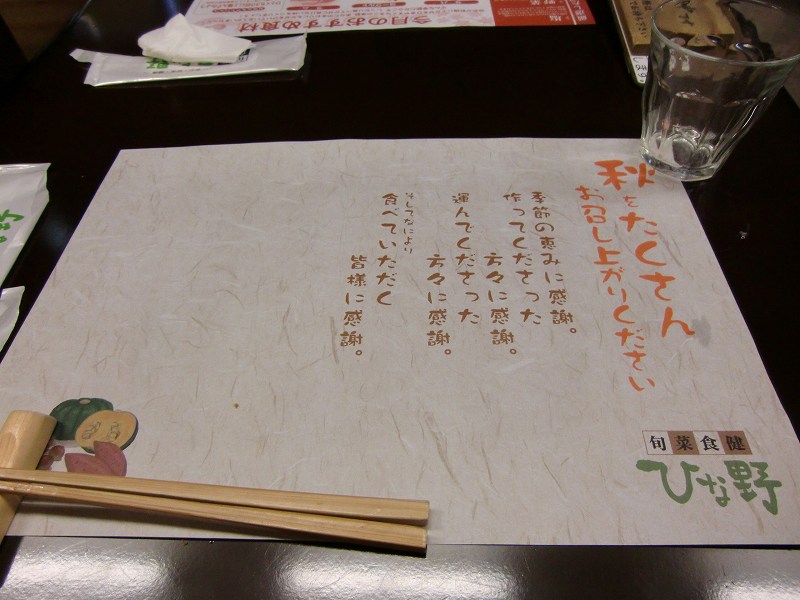 秋をたくさん
お召し上がりください
季節の恵みに感謝。
作ってくださった
方々に感謝。
運んでくださった
方々に感謝。
そしてなにより
食べていただく
皆様に感謝。
旬菜食健
ひな野
今月のおすすめ食材